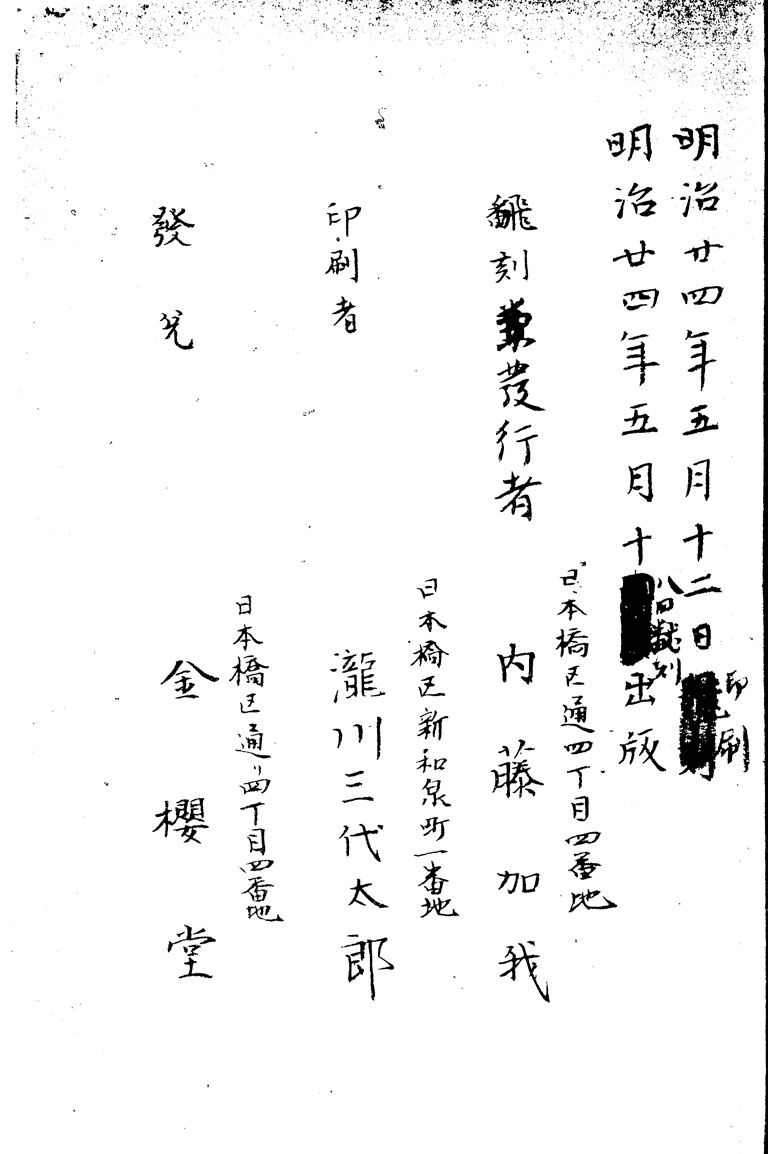 明治廿四年五月十二日印刷
明治廿四年五月十八日出版
飜刻兼發行者
日本橋区通四丁目四番地
内藤加我
印刷者
日本橋区新和泉町一番地
瀧川三代太郎
發兌
日本橋区通リ四丁目四番地
金櫻堂